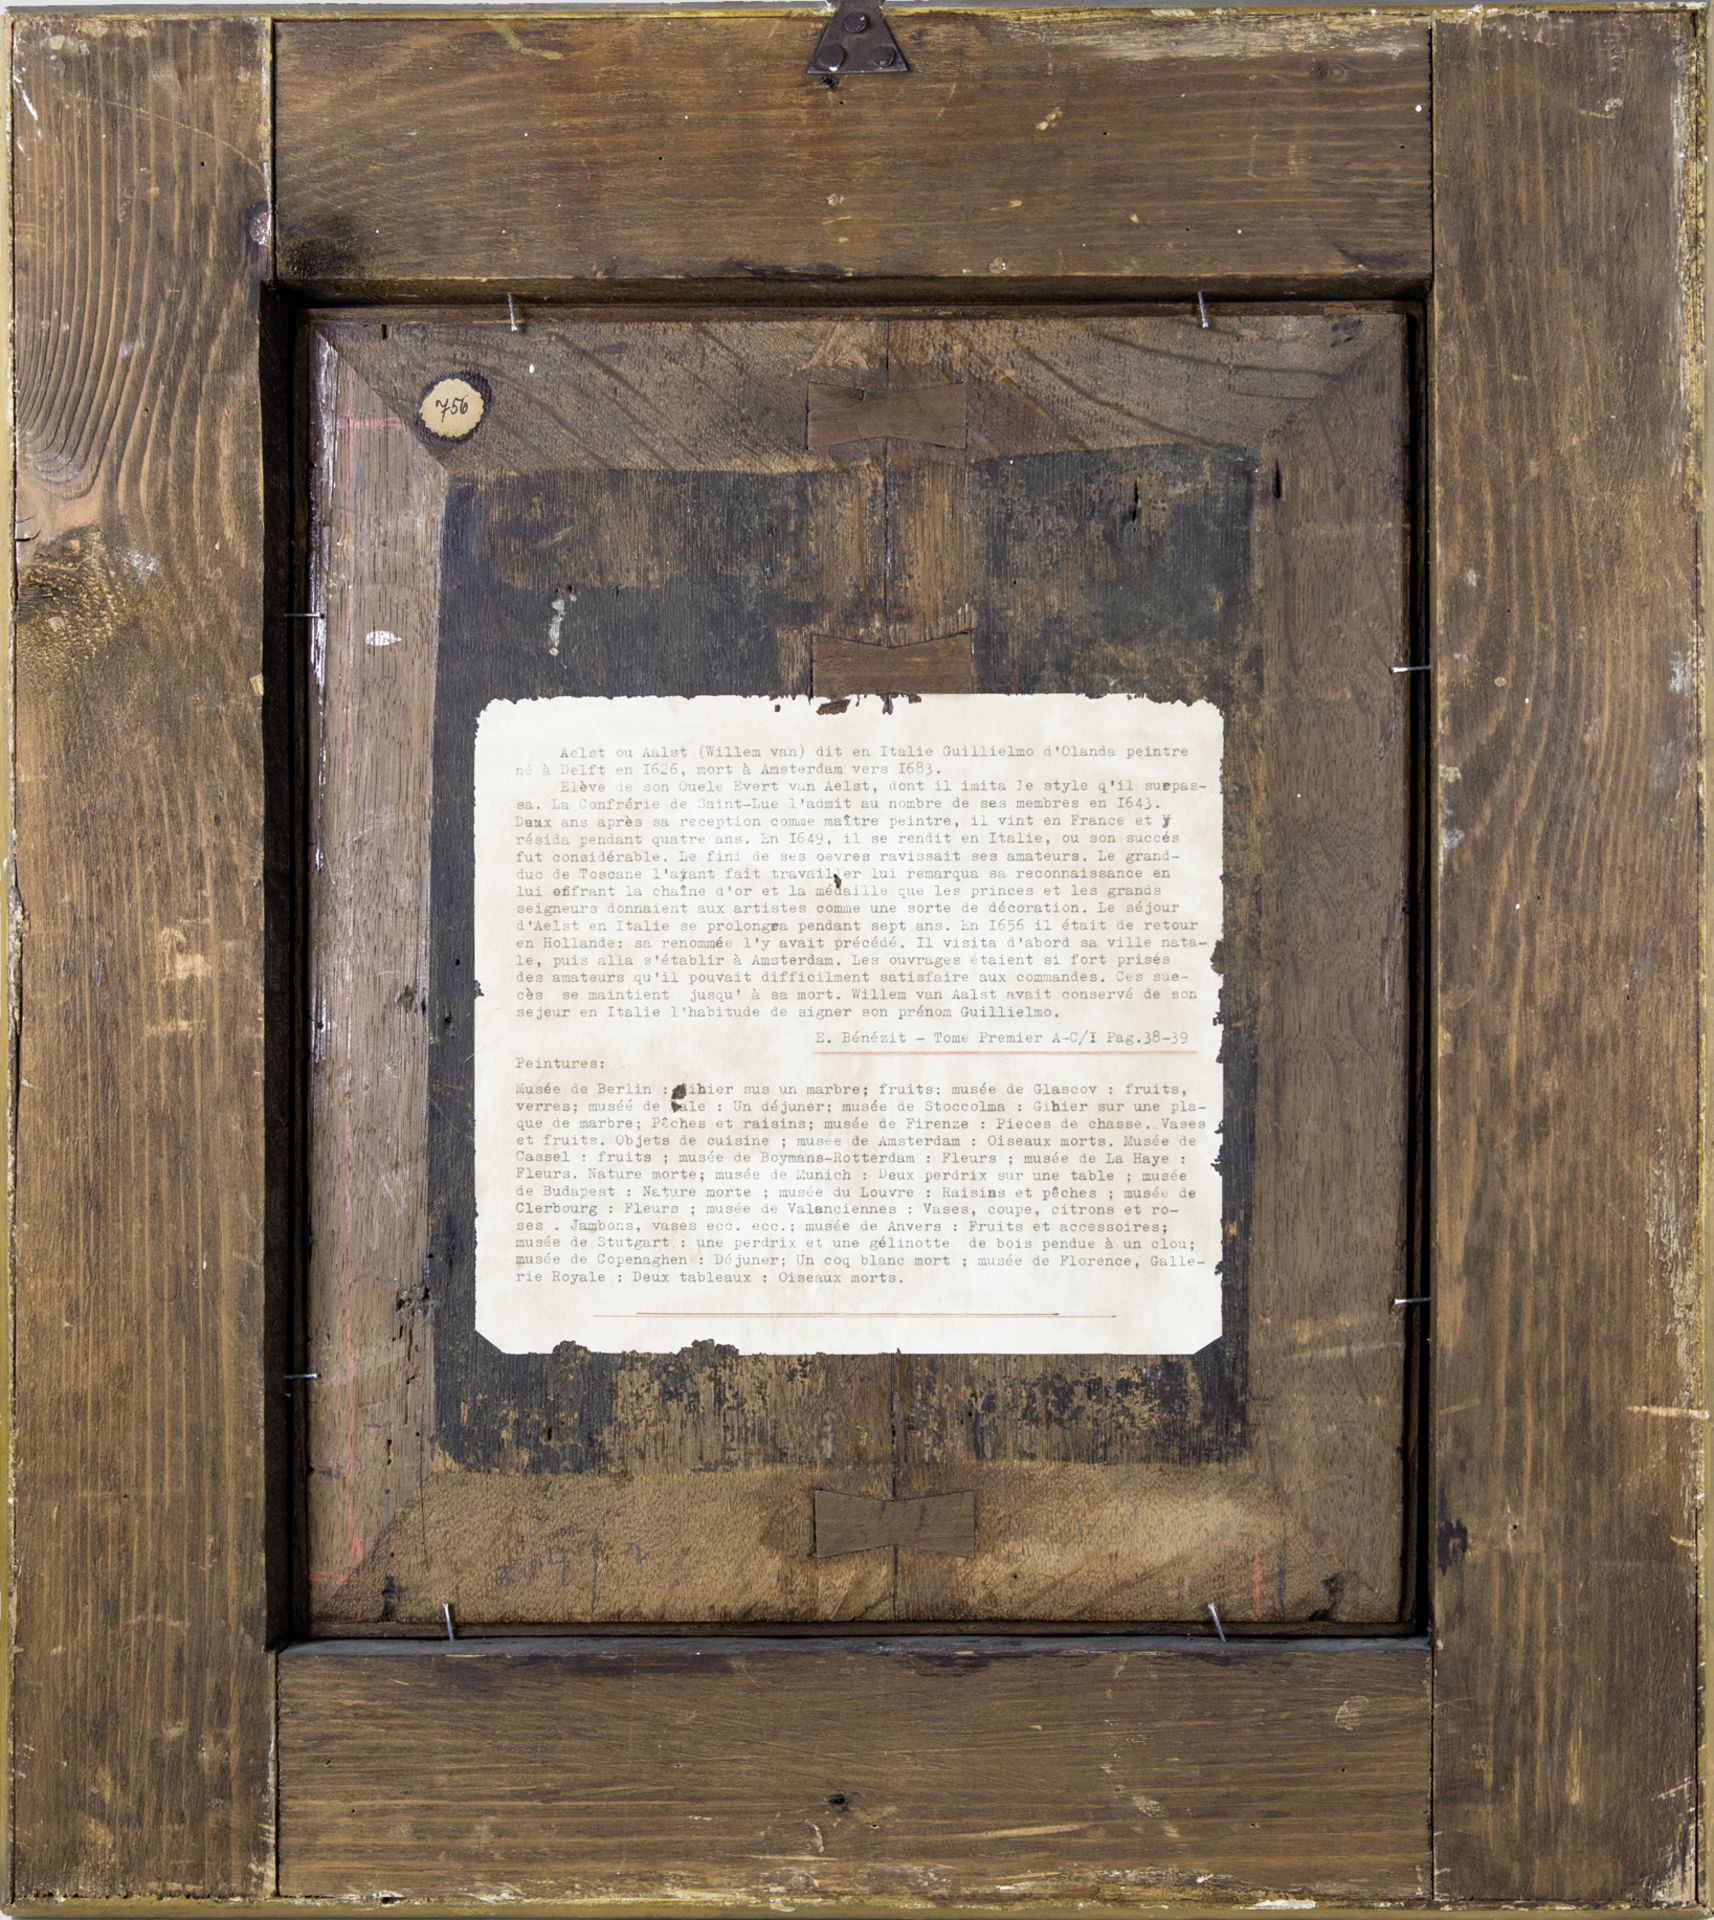 756
Aelst ou Aalst (Willem van) dit en Italie Guillielmo d'Olanda peintre
né à Delft en I626, mort à Amsterdam vers I683.
Elève de son Ouele Evert van Aelst, dont il imita le style q'il surpas-
sa. La Confrérie de Saint-Lue l'admit au nombre de ses membres en I643.
Deux ans après sa reception comme maître peintre, il vint en France et y
résida pendant quatre ans. En I649, il se rendit en Italie, ou son succés
fut considérable. Le fini de ses oevres ravissait ses amateurs. Le grand-
duc de Toscane l'ayant fait travailler lui remarqua sa reconnaissance en
lui offrant la chaîne d'or et la médaille que les princes et les grands
seigneurs donnaient aux artistes comme une sorte de décoration. Le séjour
d'Aelst en Italie se prolongea pendant sept ans. En I656 il était de retour
en Hollande: sa renommée l'y avait précédé. Il visita d'abord sa ville nata-
le, puis alla s'établir à Amsterdam. Les ouvrages étaient si fort prisés
des amateurs qu'il pouvait difficilment satisfaire aux commandes. Ces sue-
cès se maintient jusqu' à sa mort. Willem van Aalst avait conservé de son
sejeur en Italie l'habitude de signer son prénom Guillielmo.
E. Bénézit - Tome Premier A-C/I Pag.38-39
Peintures:
Musée de Berlin : Gihier sus un marbre; fruits; musée de Glascov : fruits,
verres; museé de : Un déjuner; musée de Stoccolma : Gihier sur une pla-
que de marbre; Pêches et raisins; musée de Firenze : Pieces de chasse. Vases
et fruits. Objets de cuisine ; musée de Amsterdam : Oiseaux morts. Musée de
Cassel : fruits ; musée de Boymans-Rotterdam : Fleurs ; musée de La Haye :
Fleurs. Nature morte; musée de Munich : Deux perdrix sur une table ; musée
de Budapest : Nature morte ; musée du Louvre : Raisins et pêches ; musée de
Clerbourg : Fleurs ; musée de Valanciennes : Vases, coupe, citrons et ro-
ses . Jambons, vases ecc. ecc.; musée de Anvers : Fruits et accessoires;
musée de Stutgart : une perdrix et une gélinotte de bois pendue à un clou;
musée de Copenaghen : Déjuner; Un coq blanc mort ; musée de Florence, Galle-
rie Royale : Deux tableaux : Oiseaux morts.